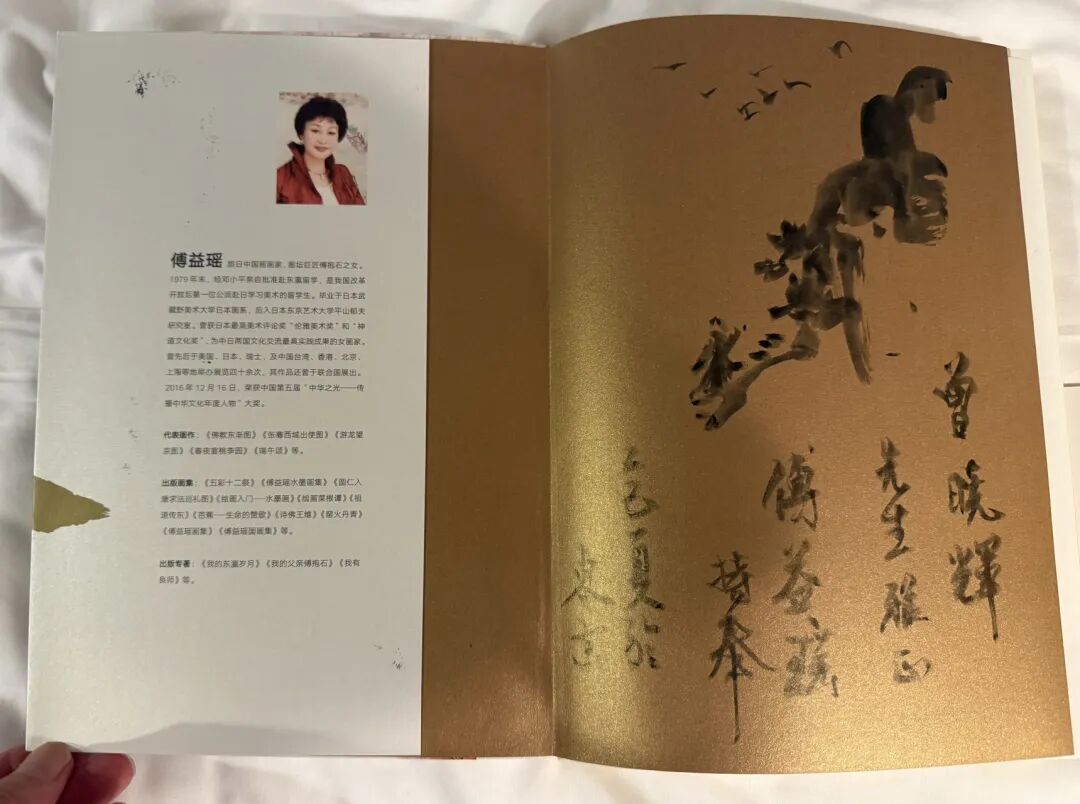 傅益瑶 旅日中国画画家，画坛巨匠傅抱石之女。
1979年末，经邓小平亲自批准赴东瀛留学，是我国改革
开放后第一位公派赴日学习美术的留学生。毕业于日本武
藏野美术大学日本画系，后入日本东京艺术大学平山郁夫
研究室。曾获日本最高美术评论奖“伦雅美术奖”和“神
道文化奖”，为中日两国文化交流最具实践成果的女画家。
曾先后于美国、日本、瑞士，及中国台湾、香港、北京、
上海等地举办展览四十余次，其作品还曾于联合国展出。
2016年12月16日，荣获中国第五届“中华之光——传
播中华文化年度人物”大奖。
代表画作：《佛教东渐图》《张骞西域出使图》《游龙望
京图》《春夜宴桃李园》《端午颂》等。
出版画集：《五彩十二祭》《傅益瑶水墨画集》《圆仁入
唐求法巡礼图》《绘画入门——水墨画》《绘画菜根谭》《祖
道传东》《芭蕉——生命的赞歌》《诗佛王维》《窑火丹青》
《傅益瑶画集》《傅益瑶国画集》等。
出版专著：《我的东瀛岁月》《我的父亲傅抱石》《我有
良师》等。
曾曉輝
先生雅正
傅益瑤
持奉
乙巳夏於
東京